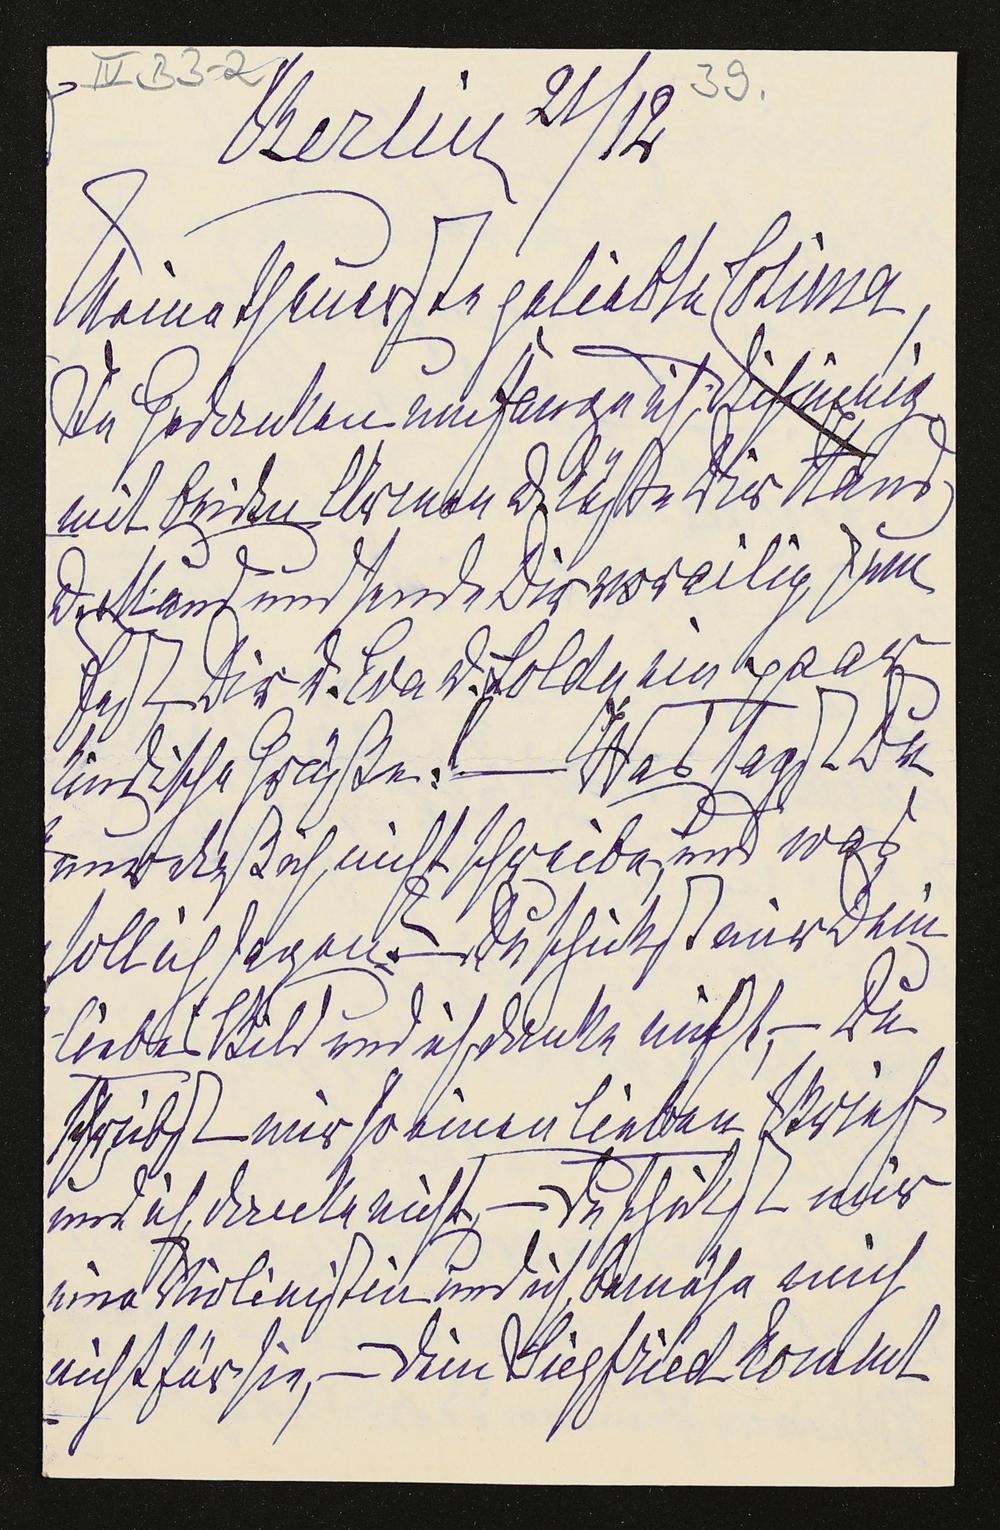 IV B 3-2
39.
Berlin 21/12
Meine theuerste geliebte Cosima,
In Gedanken umfange ich Dich innig
mit beiden Armen u. küße Dir Hand
u. Mund und sende Dir voreilig zum
Fest Dir u. Eva u. Loldy ein paar
kindische Grüße! — Was sagst Du
nur daß ich nicht schreibe, und was
soll ich sagen? — Du schickst mir Dein
liebes Bild und ich danke nicht, — Du
schreibst mir so einen lieben Brief
und ich danke nicht, — Du schickst mir
eine Violinistin und ich bemühe mich
nicht für sie, — Dein Siegfried kommt